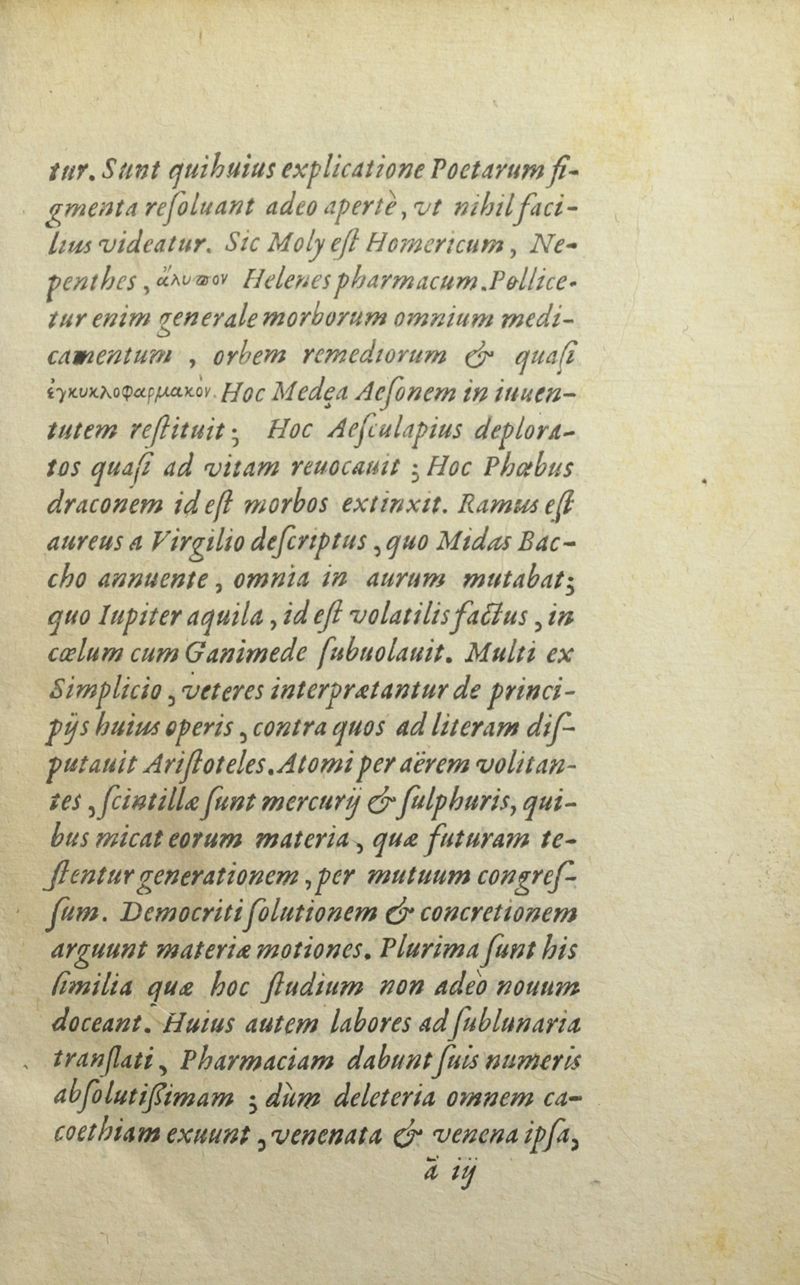 tur. Sunt qui huius explicatione Poetarum fi-
gmenta reſoluant adeo apertè, vt nihil faci-
lius videatur. Sic Moly eſt Homericum, Ne-
penthes, ἄλυπον Helenes pharmacum. Pollice-
tur enim generale morborum omnium medi-
camentum , orbem remediorum & quaſi
ἐγκυκλοφαρμακὸν. Hoc Medea Aeſonem in iuuen-
tutem reſtituit; Hoc Aeſculapius deplora-
tos quaſi ad vitam reuocauit ; Hoc Phœbus
draconem id eſt morbos extinxit. Ramus eſt
aureus a Virgilio deſcriptus, quo Midas Bac-
cho annuente, omnia in aurum mutabat;
quo Iupiter aquila, id eſt volatilis factus, in
cœlum cum Ganimede ſubuolauit. Multi ex
Simplicio, veteres interprætantur de princi-
pijs huius operis, contra quos ad literam diſ-
putauit Ariſtoteles. Atomi per aërem volitan-
tes, ſcintillæ ſunt mercurij & ſulphuris, qui-
bus micat eorum materia, quæ futuram te-
ſtentur generationem, per mutuum congreſ-
ſum. Democriti ſolutionem & concretionem
arguunt materiæ motiones. Plurima ſunt his
ſimilia quæ hoc ſtudium non adeò nouum
doceant. Huius autem labores ad ſublunaria
tranſlati, Pharmaciam dabunt ſuis numeris
abſolutiſſimam ; dùm deleteria omnem ca-
coethiam exuunt, venenata & venena ipſa,
ã iij